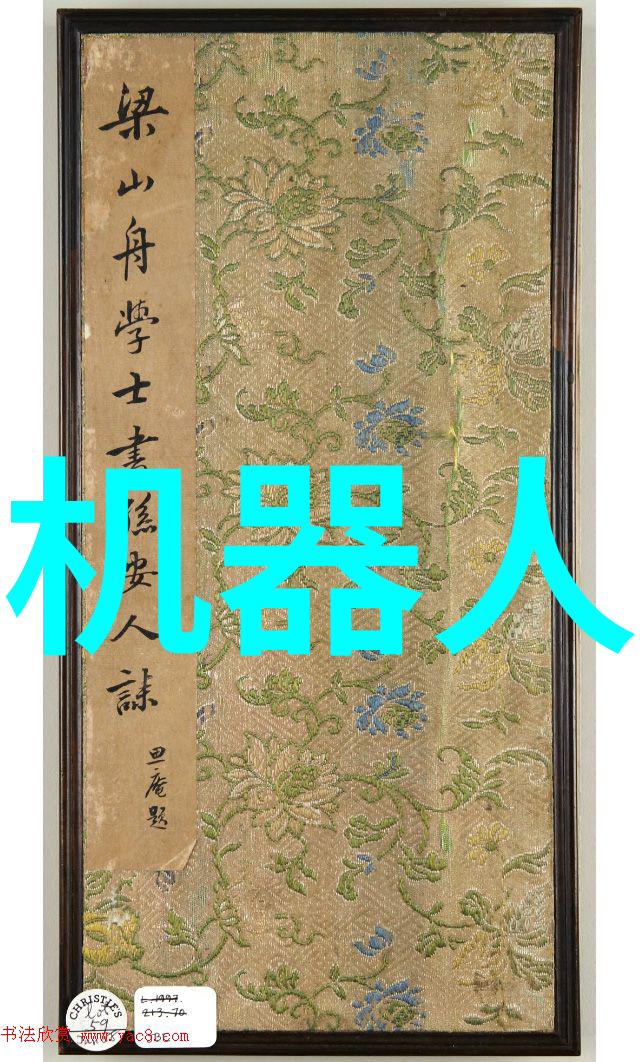 梁山舟學士書孫安人誄
思庵題
机器人
CHRISTIE'S
Lot
59
L.1997.
213.70
书法欣赏 www.yac8.com